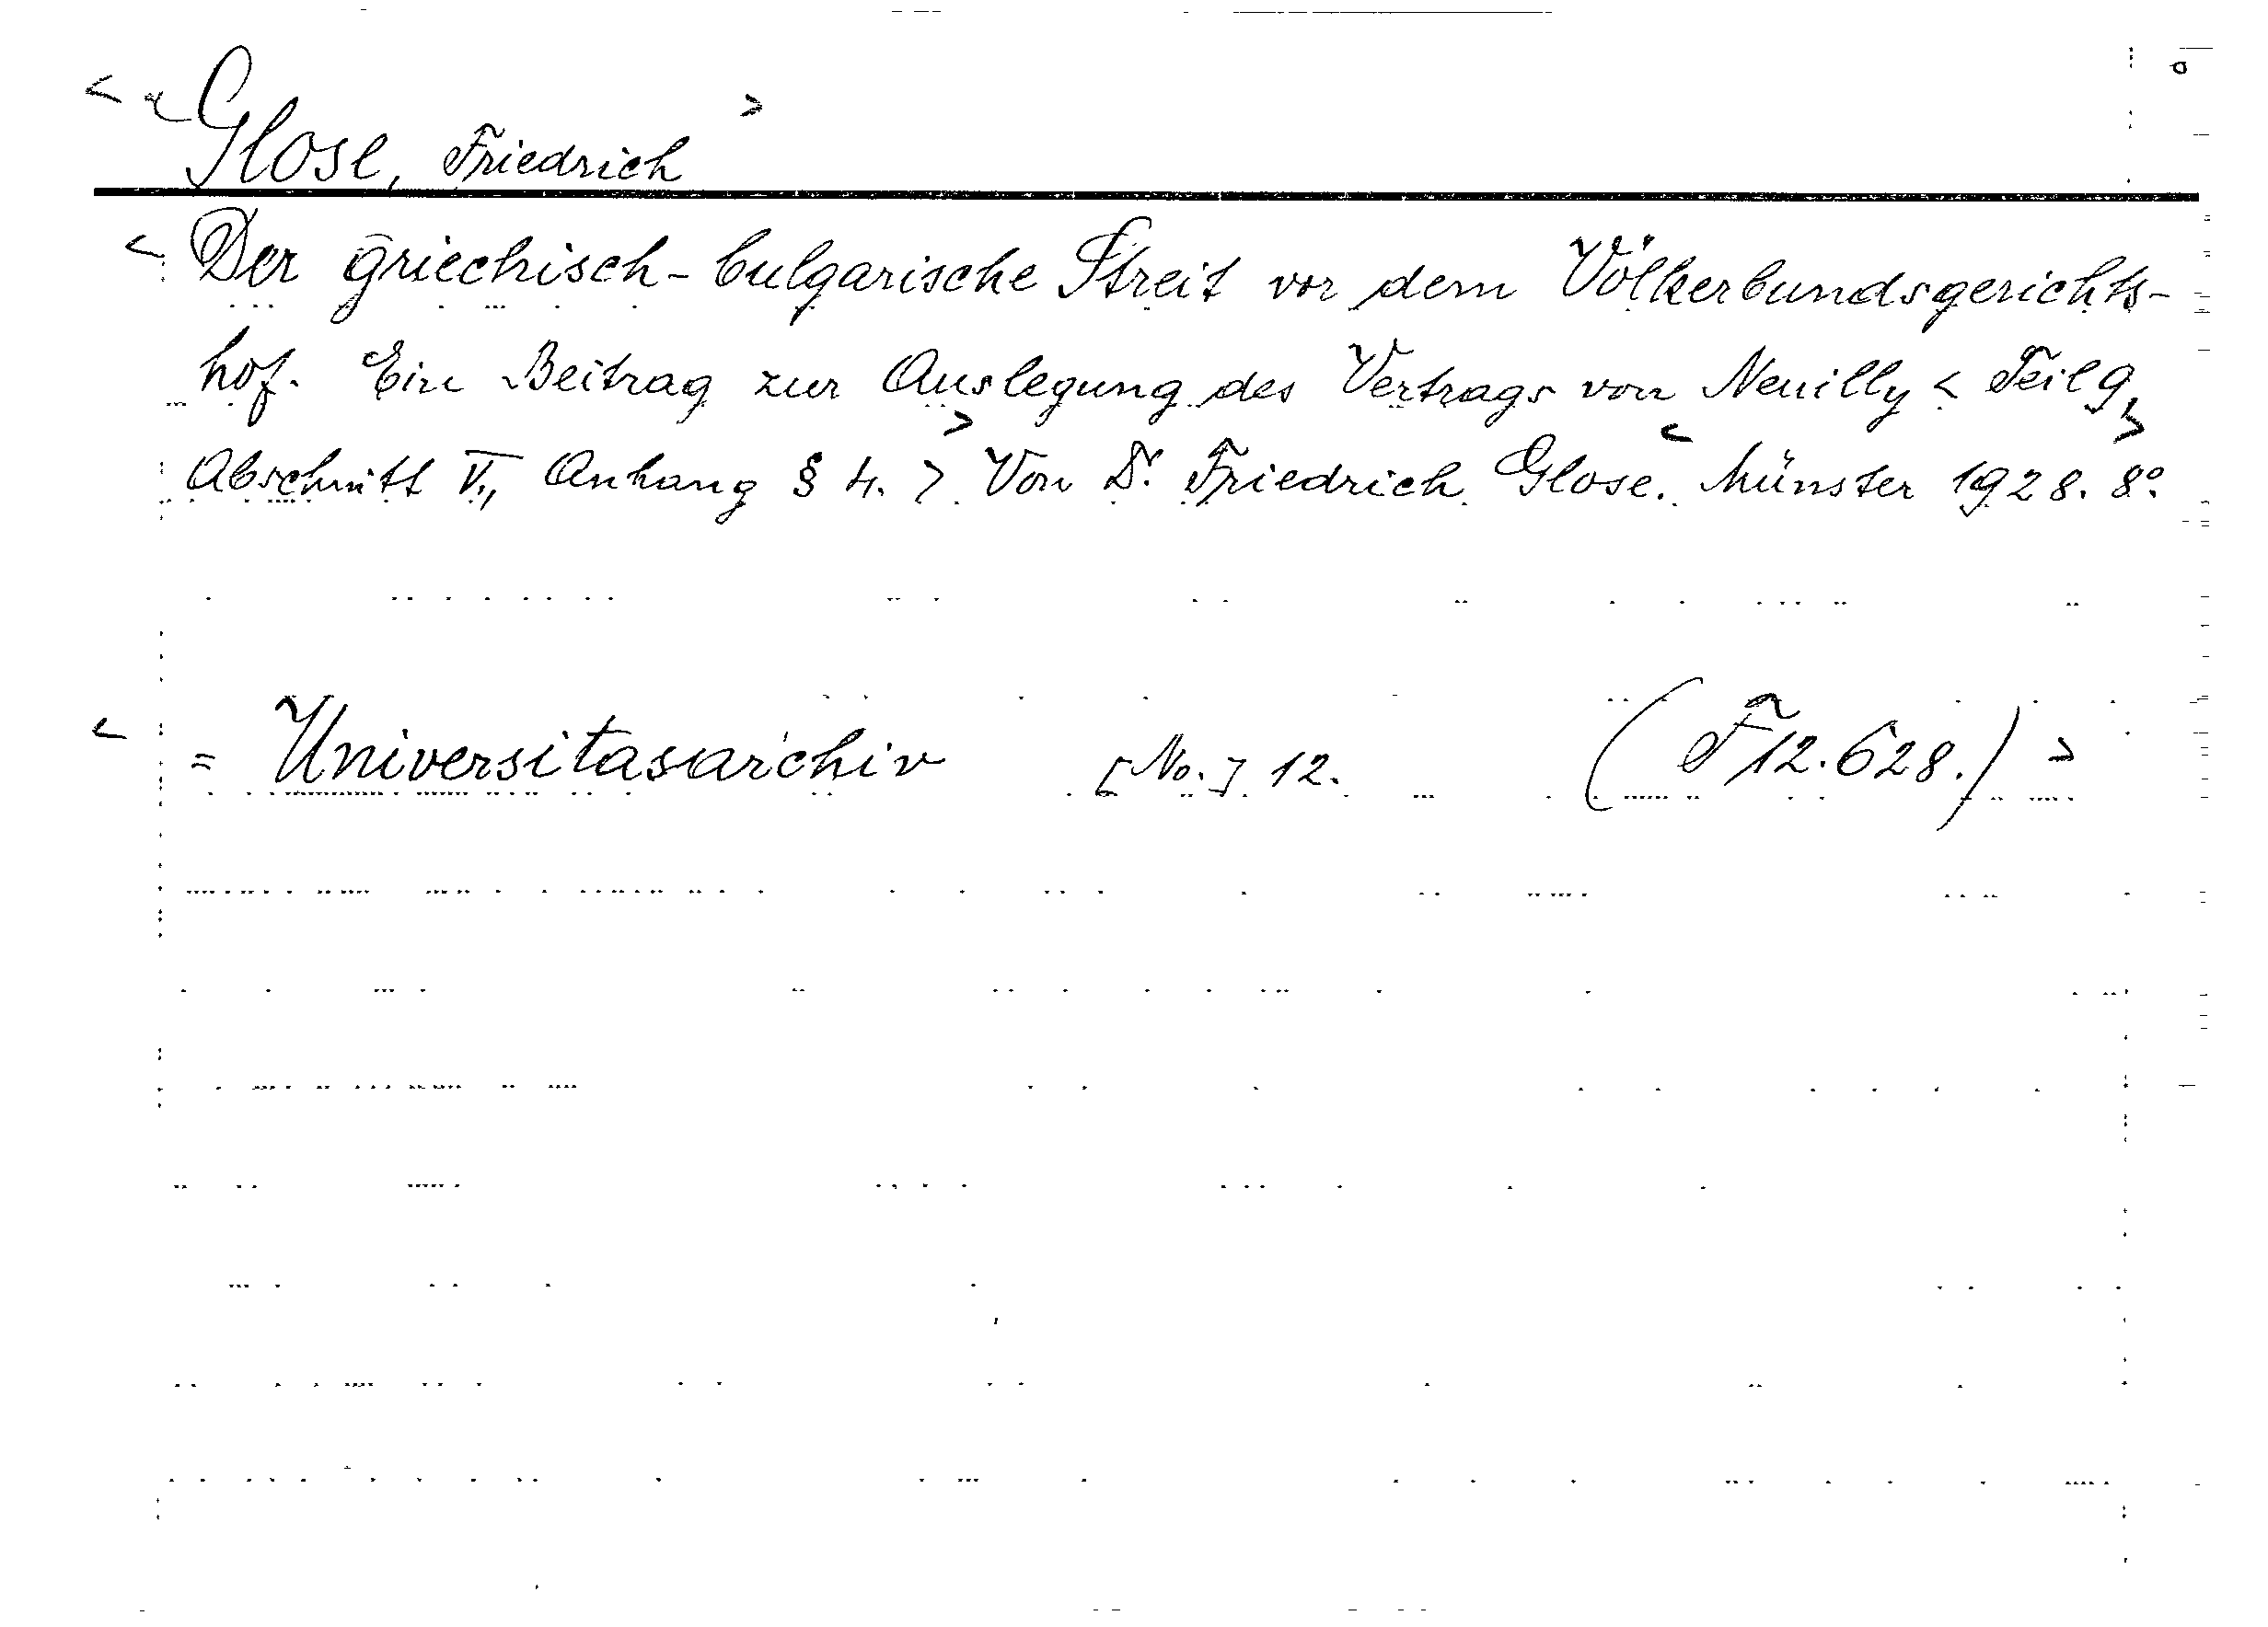 < Glose, Friedrich >
< Der griechisch-bulgarische Streit vor dem Völkerbundsgerichts-
hof. Ein Beitrag zur Auslegung des Vertrags von Neuilly < Teil 9,
Abschnitt V., Anhang § 4. > Von Dr. Friedrich Glose. < Münster 1928. 8°. >
< = Universitasarchiv [No.] 12. (F 12.628.) >